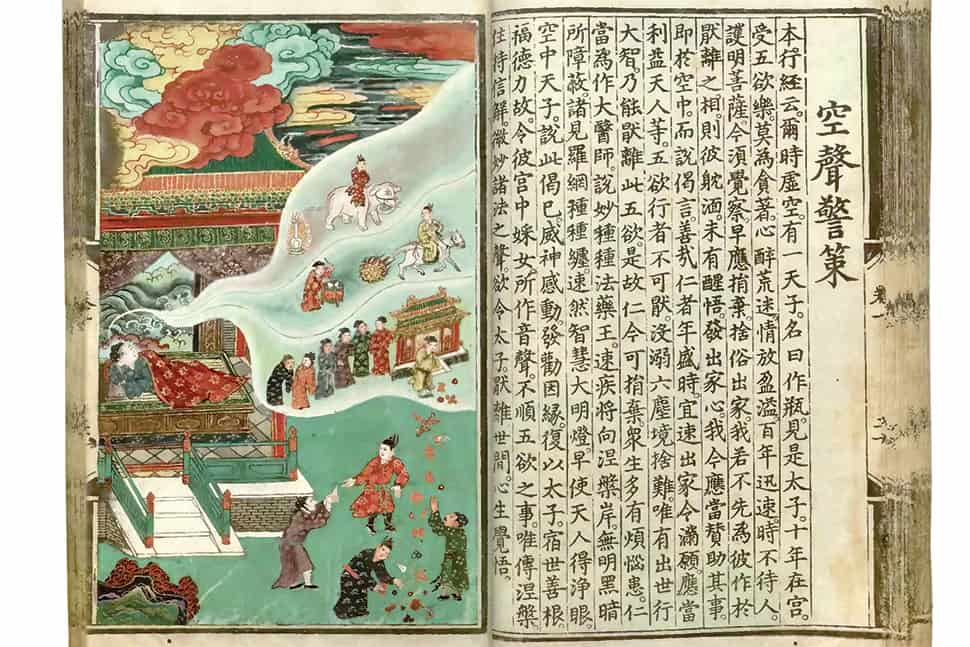 空聲警策
本行經云。爾時虛空。有一天子。名曰作瓶。見是太子。十年在宮。
受五欲樂。莫為貪著。心醉荒迷。情放盈溢。百年迅速。時不待人。
護明菩薩。今須覺察。早應捐棄。捨俗出家。我若不先為彼作於
厭離之相。則彼躭湎。未有醒悟。發出家心。我今應當贊助其事。
即於空中。而說偈言。善哉仁者年盛時。宜速出家令滿願。應當
利益天人等。五欲行者不可厭。沒溺六塵境捨難。唯有出世行
大智。乃能厭離此五欲。是故仁今可捐棄。衆生多有煩惱患。仁
當為作大醫師。說妙種種法藥王。速疾將向涅槃岸。無明黑暗
所障蔽。諸見羅網種種纏。速然智慧大明燈。早使天人得淨眼。
空中天子。說此偈已。威神感動。發勸因緣。復以太子。宿世善根。
福德力故。令彼宮中婇女。所作音聲。不順五欲之事。唯傳涅槃
住持信解。微妙諸法之聲。欲令太子。厭離世間。心生覺悟。